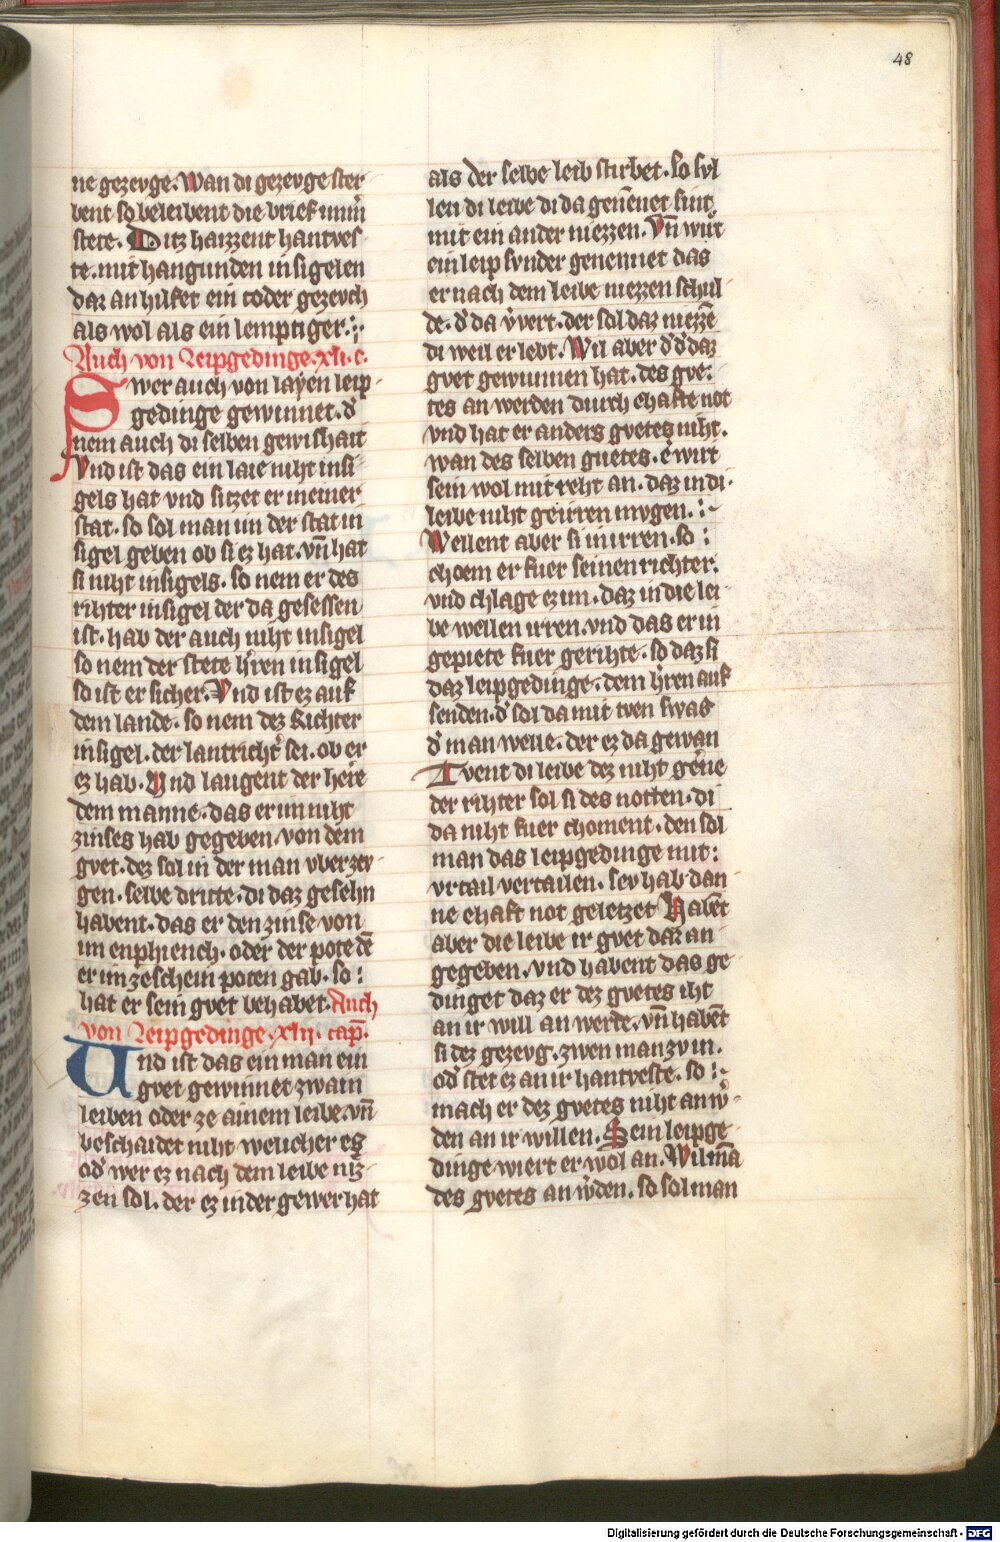 48
ne gezevge. Wan di gezevge ster
bent so beleibent die brief imm̄
stete. Ditz haizzent hantves
te. mit hangunden insigelen
dar an hilfet ein toder gezevch
als wol als ein lemptiger.
Auch von Leipgedinge. xli. c.
Swer auch von layen leip
gedinge gewinnet. d̾
nem auch di selben gewishait
Vnd ist das ein laie niht insi
gels hat vnd sitzet er in einer
stat. so sol man im der stat in
sigel geben ob si ez hat. vn̄ hat
si niht insigels. so nem er des
rihter insigel der da gesessen
ist. hab der auch niht insigel
so nem der stete h̾ren insigel
so ist er sicher. Vnd ist ez auf
dem lande. so nem dez Richter
insigel. der lantricht̾ sei. ob er
ez hab. Vnd laugent der herre
dem manne. das er im niht
zinses hab gegeben von dem
gvet. dez sol in der man vberzev
gen. selbe dritte. di daz gesehn
habent. das er den zinse von
im enphiench. oder der pote dē
er im ze schein poten gab. so
hat er sein gvet behabet. Auch
von Leipgedinge. xlii. cap̄.
Und ist das ein man ein
gvet gewinnet zwain
leiben oder ze ainem leibe. vn̄
beschaidet niht welicher es
od̾ wer ez nach dem leibe niz
zen sol. der ez in der gewer hat
als der selbe leib stirbet. so svl
len di leibe di da genēnet sint
mit ein ander niezzen. Vn̄ wirt
ein leip svnder genennet das
er nach dem leibe niezzen schul
de. d̾ da v̾vert. der sol daz niezzē
di weil er lebt. Wil aber d̾ d̾ daz
gvet gewunnen hat. des gve
tes an werden durch ehafte not
vnd hat er anders gvetes niht.
wan des selben guetes. er wirt
sein wol mit reht an. daz in di
leibe niht geirren mvgen.
Wellent aber si in irren. so
choem er fuer seinen richter.
vnd chlage ez im. daz in die lei
be wellen irren. vnd das er in
gepiete fuer gerihte. so daz si
daz leipgedinge. dem h̾ren auf
senden. d̾ sol da mit tven swas
d̾ man welle. der ez da gewan
Tvent di leibe dez niht gerne
der rihter sol si des notten. di
da niht fuer choment. den sol
man das leipgedinge mit
vrtail vertailen. sev hab dan
ne ehaft not geletzet Habēt
aber die leibe ir gvet dar an
gegeben. vnd habent das ge
dinget daz er dez gvetes iht
an ir will an werde. vn̄ habēt
si dez gezevg. zwen man zv im.
od̾ stet ez an ir hantveste. so
mach er dez gvetes niht an w̾
den an ir willen. Sein leipge
dinge wiert er wol an. Wil mā
des gvetes an w̾den. so sol man
Digitalisierung gefördert durch die Deutsche Forschungsgemeinschaft - DFG